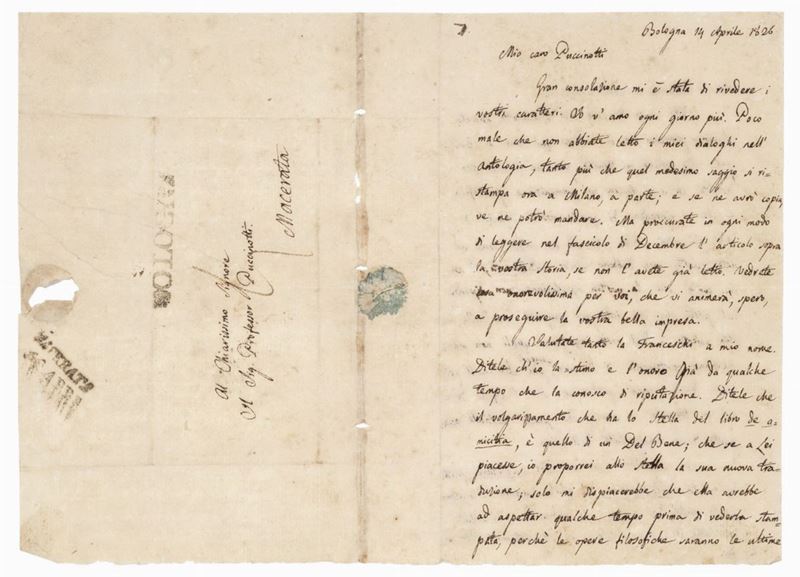 BOLOGNA
MACERATA
Al Chiarissimo Signore
Il Sig. Professor Puccinotti
Macerata
7.
Bologna 14 Aprile 1826
Mio caro Puccinotti
Gran consolazione mi è stata di rivedere i
vostri caratteri. Io v' amo ogni giorno più. Poco
male che non abbiate letto i miei dialoghi nell'
Antologia, tanto più che quel medesimo saggio si ri-
stampa ora a Milano, a parte; e se ne avrò copia,
ve ne potrò mandare. Ma proccurate in ogni modo
di leggere nel fascicolo di Decembre l' articolo sopra
la vostra Storia, se non l' avete già letto. Vedrete
cosa onorevolissima per voi, che vi animerà, spero,
a proseguire la vostra bella impresa.
Salutate tanto la Franceschi a mio nome.
Ditele ch' io la stimo e l' onoro già da qualche
tempo che la conosco di riputazione. Ditele che
il volgarizzamento che ha lo Stella del libro de a-
micitia, è quello di cui Del Bene; che se a Lei
piacesse, io proporrei allo Stella la sua nuova tra-
duzione; solo mi dispiacerebbe che ella avrebbe
ad aspettar qualche tempo prima di vederla stam-
pata, perchè le opere filosofiche saranno le ultime